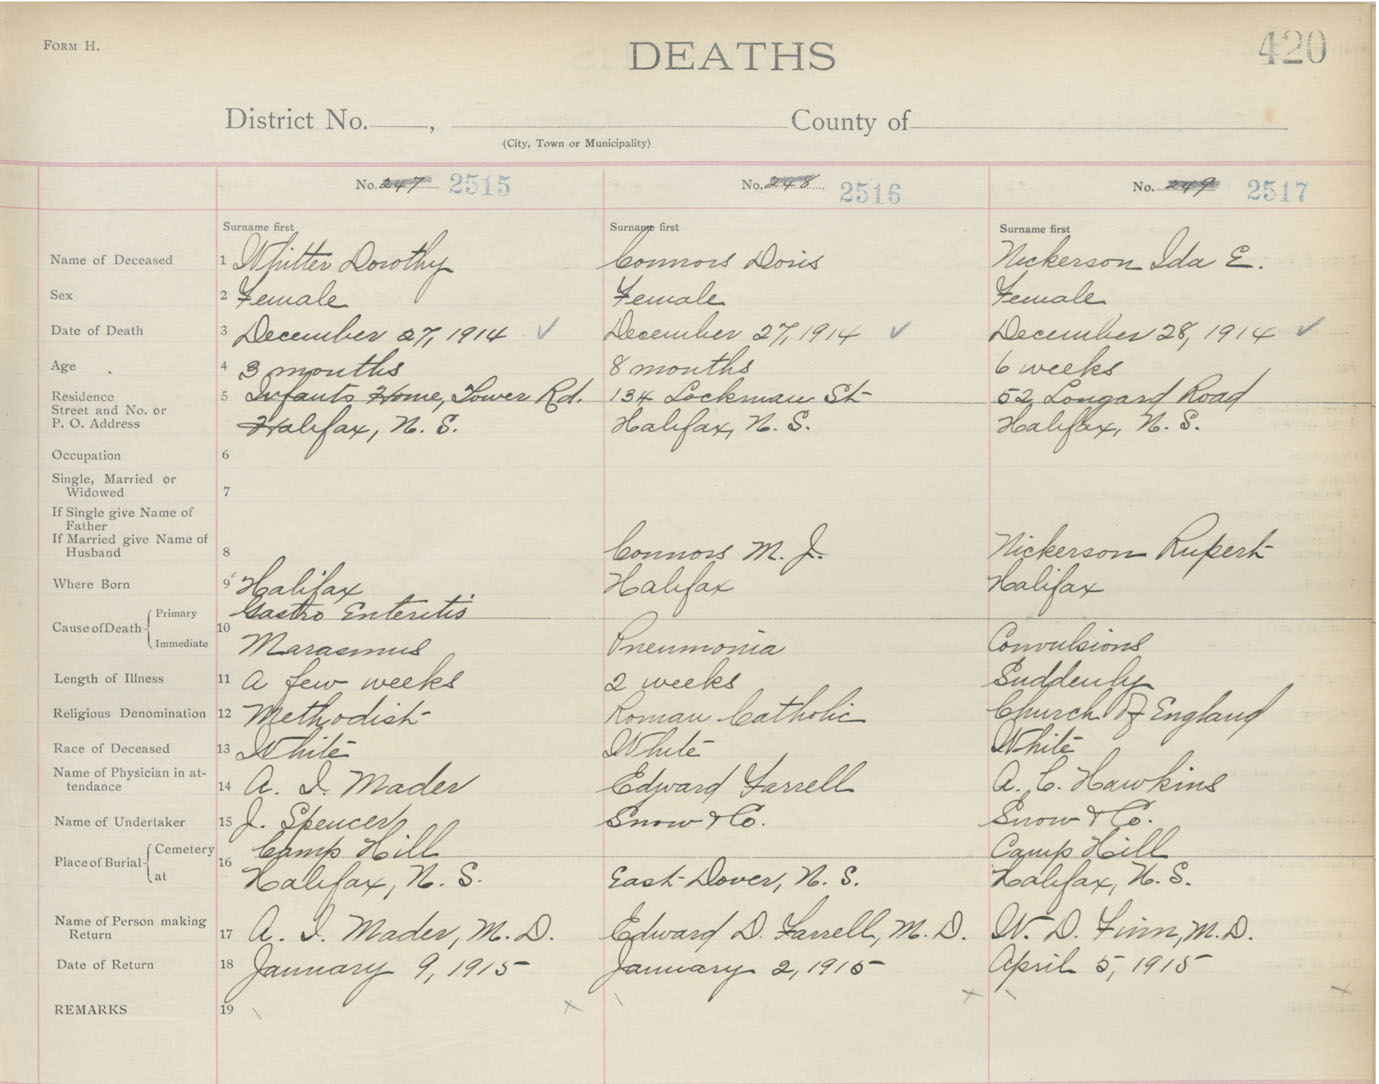 FORM H.
DEATHS
420
District No. , County of
(City, Town or Municipality)
No. 247 2515 No. 248 2516 No. 249 2517
Surname first Surname first Surname first
Name of Deceased 1 Whitter Dorothy Connors Doris Nickerson Ida E.
Sex 2 Female Female Female
Date of Death 3 December 27, 1914 ✓ December 27, 1914 ✓ December 28, 1914 ✓
Age 4 3 months 8 months 6 weeks
Residence 5 Infants Home, Tower Rd. 134 Lockman St 52 Longard Road
Street and No. or
P. O. Address Halifax, N. S. Halifax, N. S. Halifax, N. S.
Occupation 6
Single, Married or
Widowed 7
If Single give Name of
Father
If Married give Name of
Husband 8 Connors M. J. Nickerson Rupert
Where Born 9 Halifax Halifax Halifax
Cause of Death Primary Gastro Enteritis
10
Immediate Marasmus Pneumonia Convulsions
Length of Illness 11 A few weeks 2 weeks Suddenly
Religious Denomination 12 Methodist Roman Catholic Church of England
Race of Deceased 13 White White White
Name of Physician in at-
tendance 14 A. I. Mader Edward Farrell A. C. Hawkins
Name of Undertaker 15 J. Spencer Snow & Co. Snow & Co.
Place of Burial Cemetery 16 Camp Hill Camp Hill
at Halifax, N. S. East Dover, N. S. Halifax, N. S.
Name of Person making
Return 17 A. I. Mader, M. D. Edward D. Farrell, M. D. W. D. Finn, M. D.
Date of Return 18 January 9, 1915 January 2, 1915 April 5, 1915
REMARKS 19